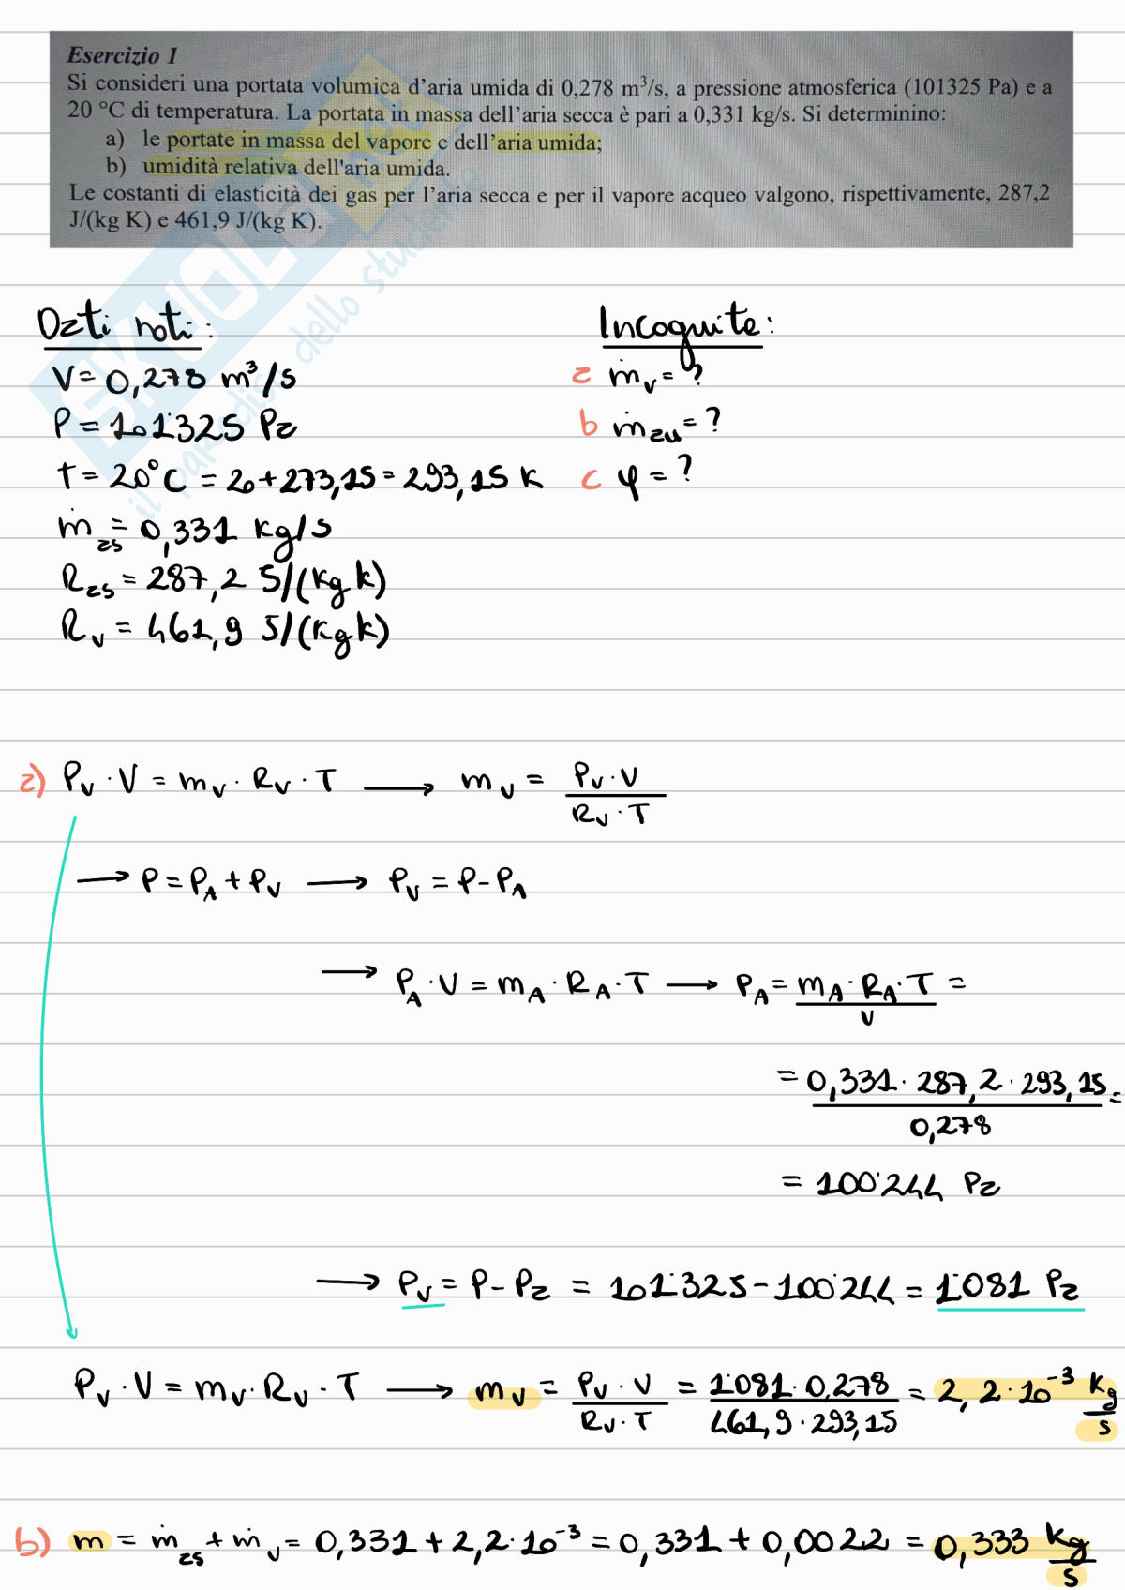 Esercizio 1
Si consideri una portata volumica d'aria umida di 0,278 m³/s, a pressione atmosferica (101325 Pa) e a
20 °C di temperatura. La portata in massa dell'aria secca è pari a 0,331 kg/s. Si determinino:
a) le portate in massa del vapore e dell'aria umida;
b) umidità relativa dell'aria umida.
Le costanti di elasticità dei gas per l'aria secca e per il vapore acqueo valgono, rispettivamente, 287,2
J/(kg K) e 461,9 J/(kg K).
SKUOLA.net
il paradiso dello studente
Dati noti: Incognite:
V = 0,278 m³/s a ṁv = ?
P = 101'325 Pa b ṁau = ?
t = 20°C = 20+273,15 = 293,15 K c φ = ?
ṁas = 0,331 kg/s
Ras = 287,2 J/(kg k)
Rv = 461,9 J/(kg k)
a) Pv · V = mv · Rv · T → mv = Pv · V / Rv · T
→ P = PA + PV → PV = P - PA
→ PA · V = mA · RA · T → PA = mA · RA · T / V =
= 0,331 · 287,2 · 293,15 / 0,278 =
= 100'244 Pa
→ Pv = P - Pa = 101'325 - 100'244 = 1'081 Pa
Pv · V = mv · Rv · T → mv = Pv · V / Rv · T = 1'081 · 0,278 / 461,9 · 293,15 = 2,2 · 10⁻³ kg/s
b) m = ṁas + ṁv = 0,331 + 2,2 · 10⁻³ = 0,331 + 0,0022 = 0,333 kg/s